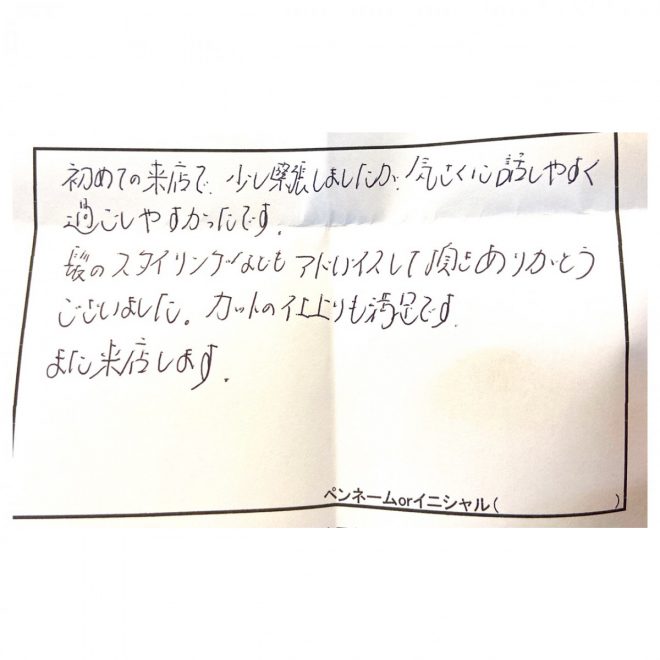 初めての来店で、少し緊張しましたが、気さくに話しやすく
過ごしやすかったです。
髪のスタイリングなどもアドバイスして頂きありがとう
ございました。カットの仕上りも満足です。
また来店します。
ペンネームorイニシャル(　　　　　)